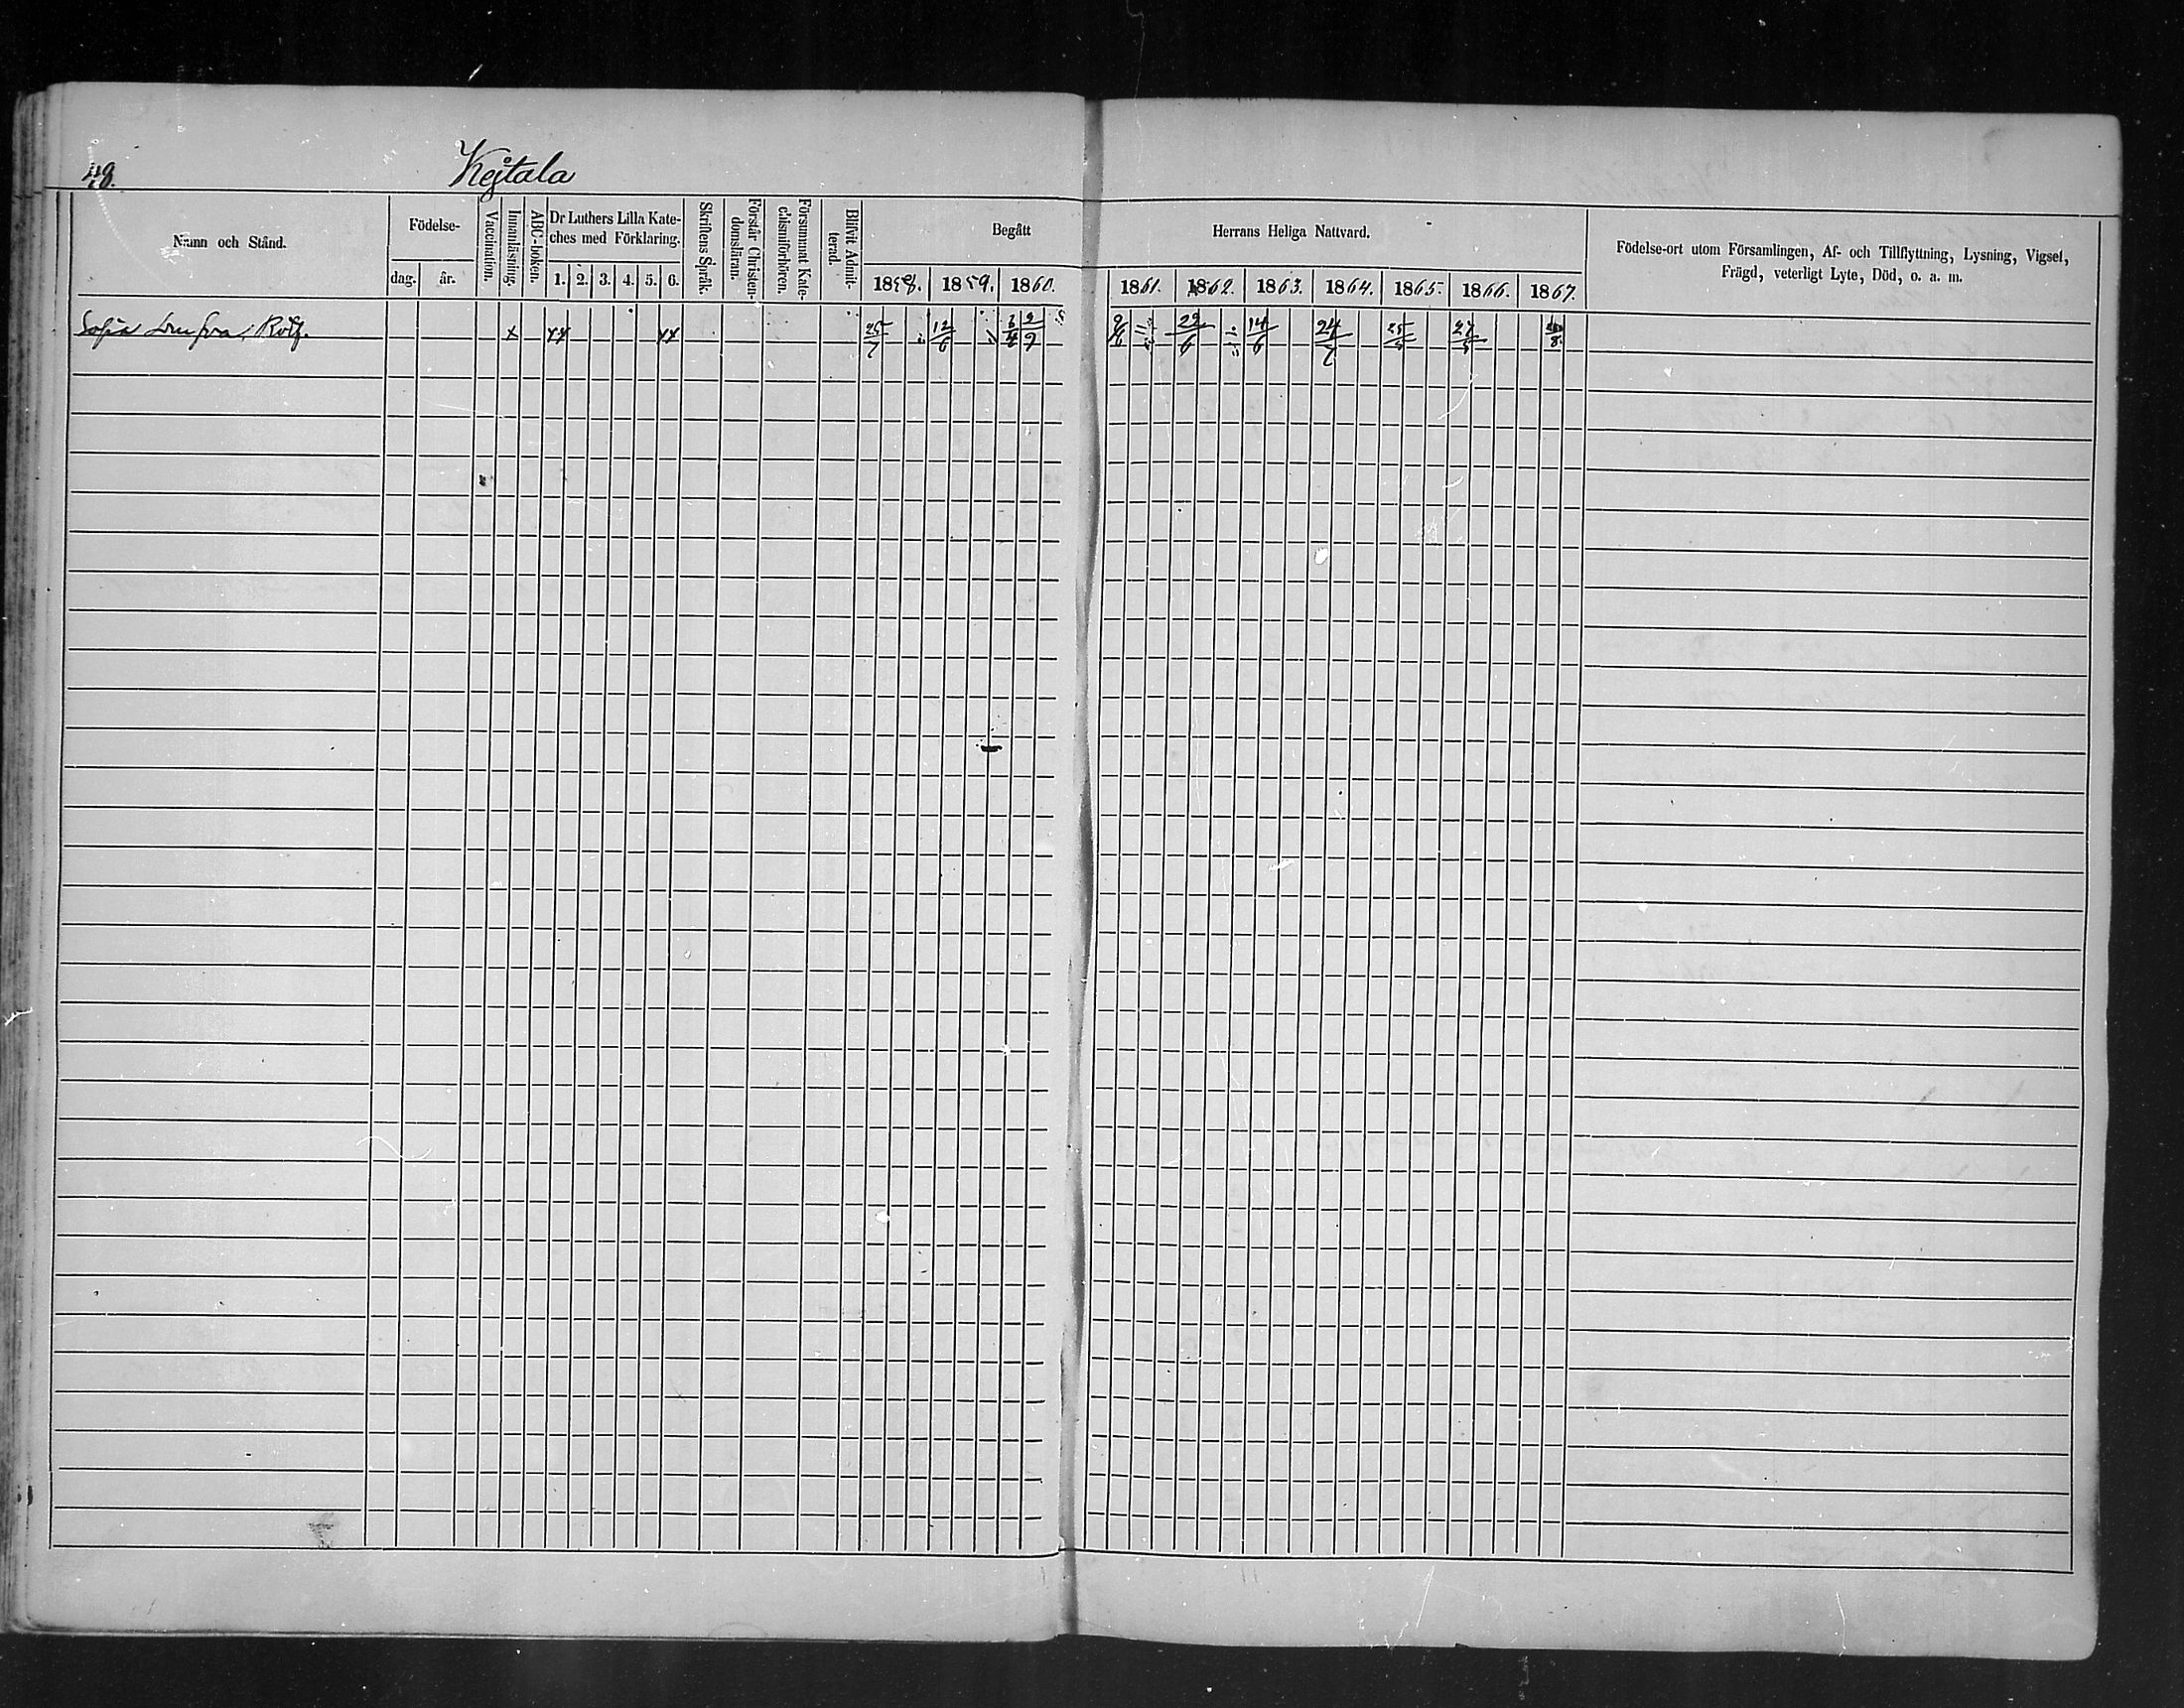 48.
Kejtala
Namn och Stånd.
Födelse-
dag.
år.
Vaccination.
Innanläsning.
ABC-boken.
Dr Luthers Lilla Kate-
ches med Förklaring.
1. 2. 3. 4. 5. 6.
Skriftens Språk.
Förstår Christen-
domsläran.
Försummat Kate-
chismiförhören.
Blifvit Admit-
terad.
Begått
Herrans Heliga Nattvard.
1858. 1859. 1860. 1861. 1862. 1863. 1864. 1865. 1866. 1867.
Födelse-ort utom Församlingen, Af- och Tillflyttning, Lysning, Vigsel,
Frägd, veterligt Lyte, Död, o. a. m.
Sofia 25/7 12/6 9/6 22/6 14/6 24/7 25/5 27/5